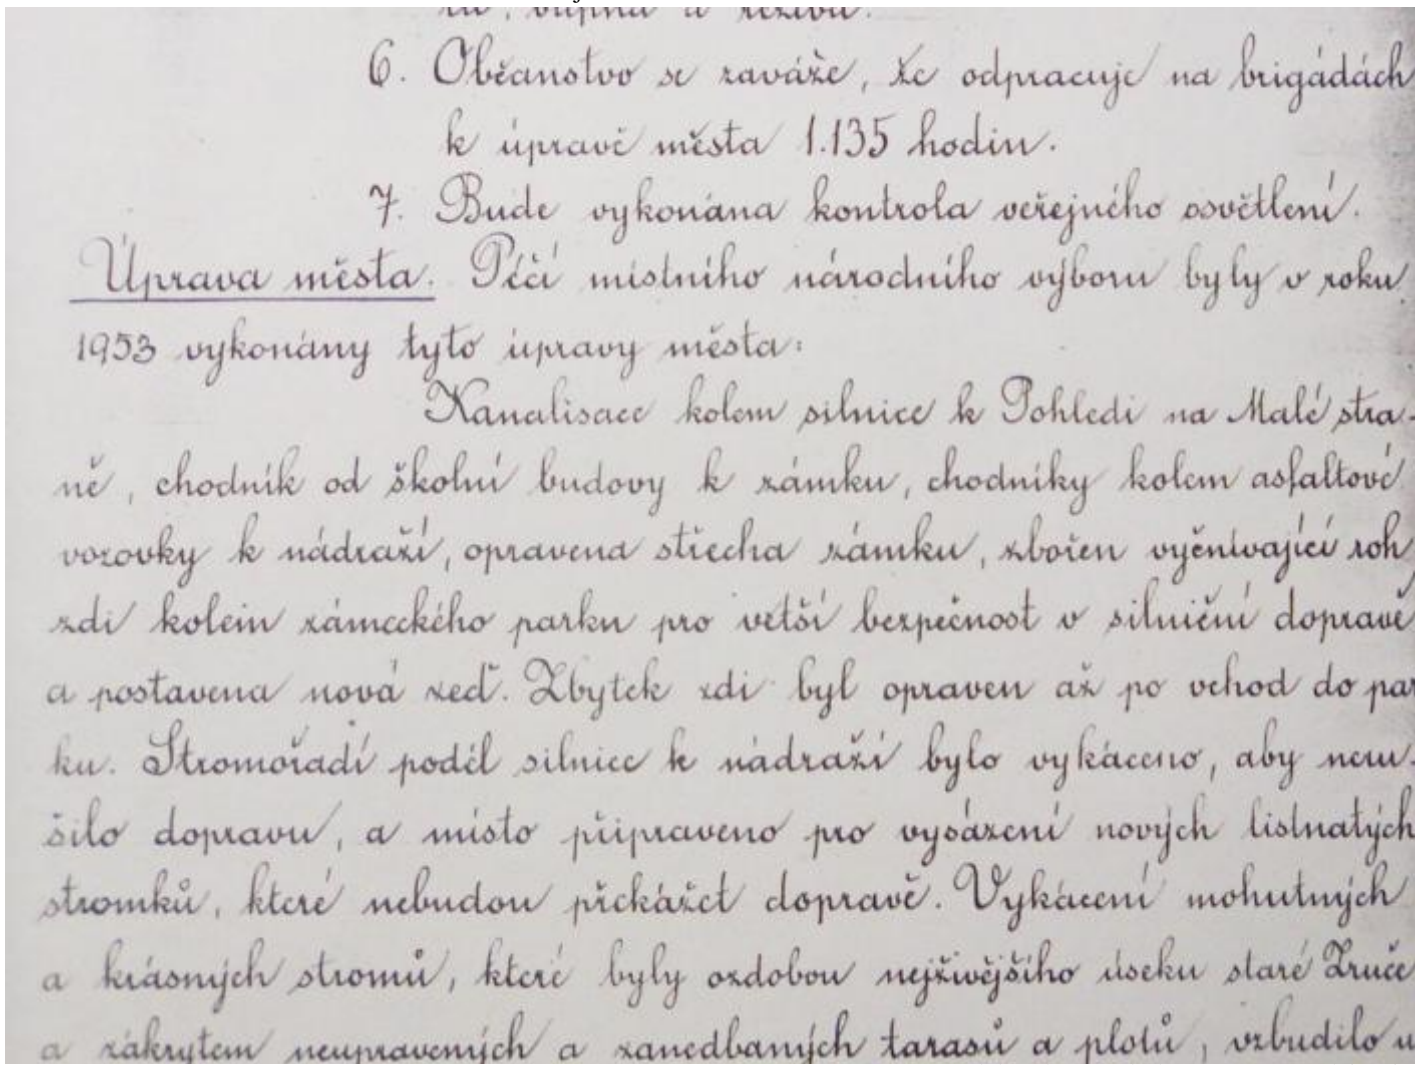 vápna a řeziva.
6. Občanstvo se zaváže, že odpracuje na brigádách
k úpravě města 1.135 hodin.
7. Bude vykonána kontrola veřejného osvětlení.
Úprava města. Péčí místního národního výboru byly v roku
1953 vykonány tyto úpravy města:
Kanalisace kolem silnice k Pohledi na Malé stra-
ně, chodník od školní budovy k zámku, chodníky kolem asfaltové
vozovky k nádraží, opravena střecha zámku, zbořen vyčnívající roh
zdi kolem zámeckého parku pro větší bezpečnost v silniční dopravě
a postavena nová zeď. Zbytek zdi byl opraven až po vchod do par
ku. Stromořadí podél silnice k nádraží bylo vykáceno, aby neru-
šilo dopravu, a místo připraveno pro vysázení nových listnatých
stromků, které nebudou překážet dopravě. Vykácení mohutných
a krásných stromů, které byly ozdobou nejživějšího úseku staré Zruče
a zákrytem neupravených a zanedbaných tarasů a plotů, vzbudilo u